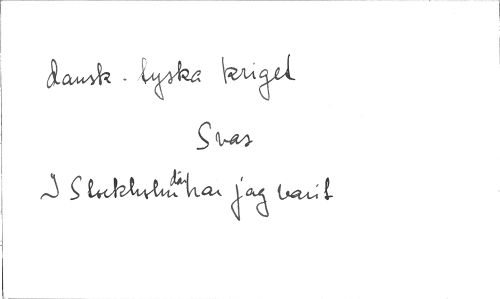 dansk-tyska kriget
Svar
I Stockholm där har jag varit